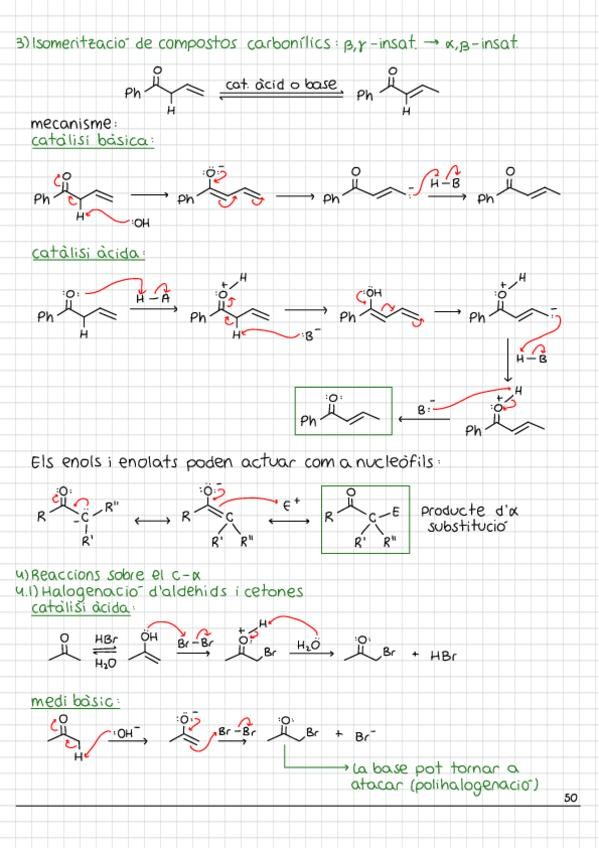 3) Isomerització de compostos carbonílics: β,γ-insat. → α,β-insat.
O
Ph
H
cat. àcid o base
O
Ph
H
mecanisme:
catàlisi bàsica:
O
Ph
H
:OH
:Ö:⁻
Ph
O
Ph
:⁻
H-B
O
Ph
catàlisi àcida:
:O:
Ph
H
H-A
H
+
:O
Ph
H
:B⁻
:ÖH
Ph
H
+
:O
Ph
:⁻
H-B
H
+
:O
Ph
B:⁻
:O:
Ph
Els enols i enolats poden actuar com a nucleòfils:
:O:
R
C
R''
R'
:Ö:⁻
R
C
R'
R''
E⁺
O
R
C-E
R'
R''
Producte d'α
substitució
4) Reaccions sobre el C-α
4.1) Halogenació d'aldehids i cetones
catàlisi àcida:
O
HBr
H₂O
ÖH
Br-Br
+
H
:O
Br
H₂Ö
:O:
Br + HBr
medi bàsic:
O
H
:OH⁻
:Ö:⁻
Br-Br
:O:
Br + Br⁻
La base pot tornar a
atacar (polihalogenació)
50